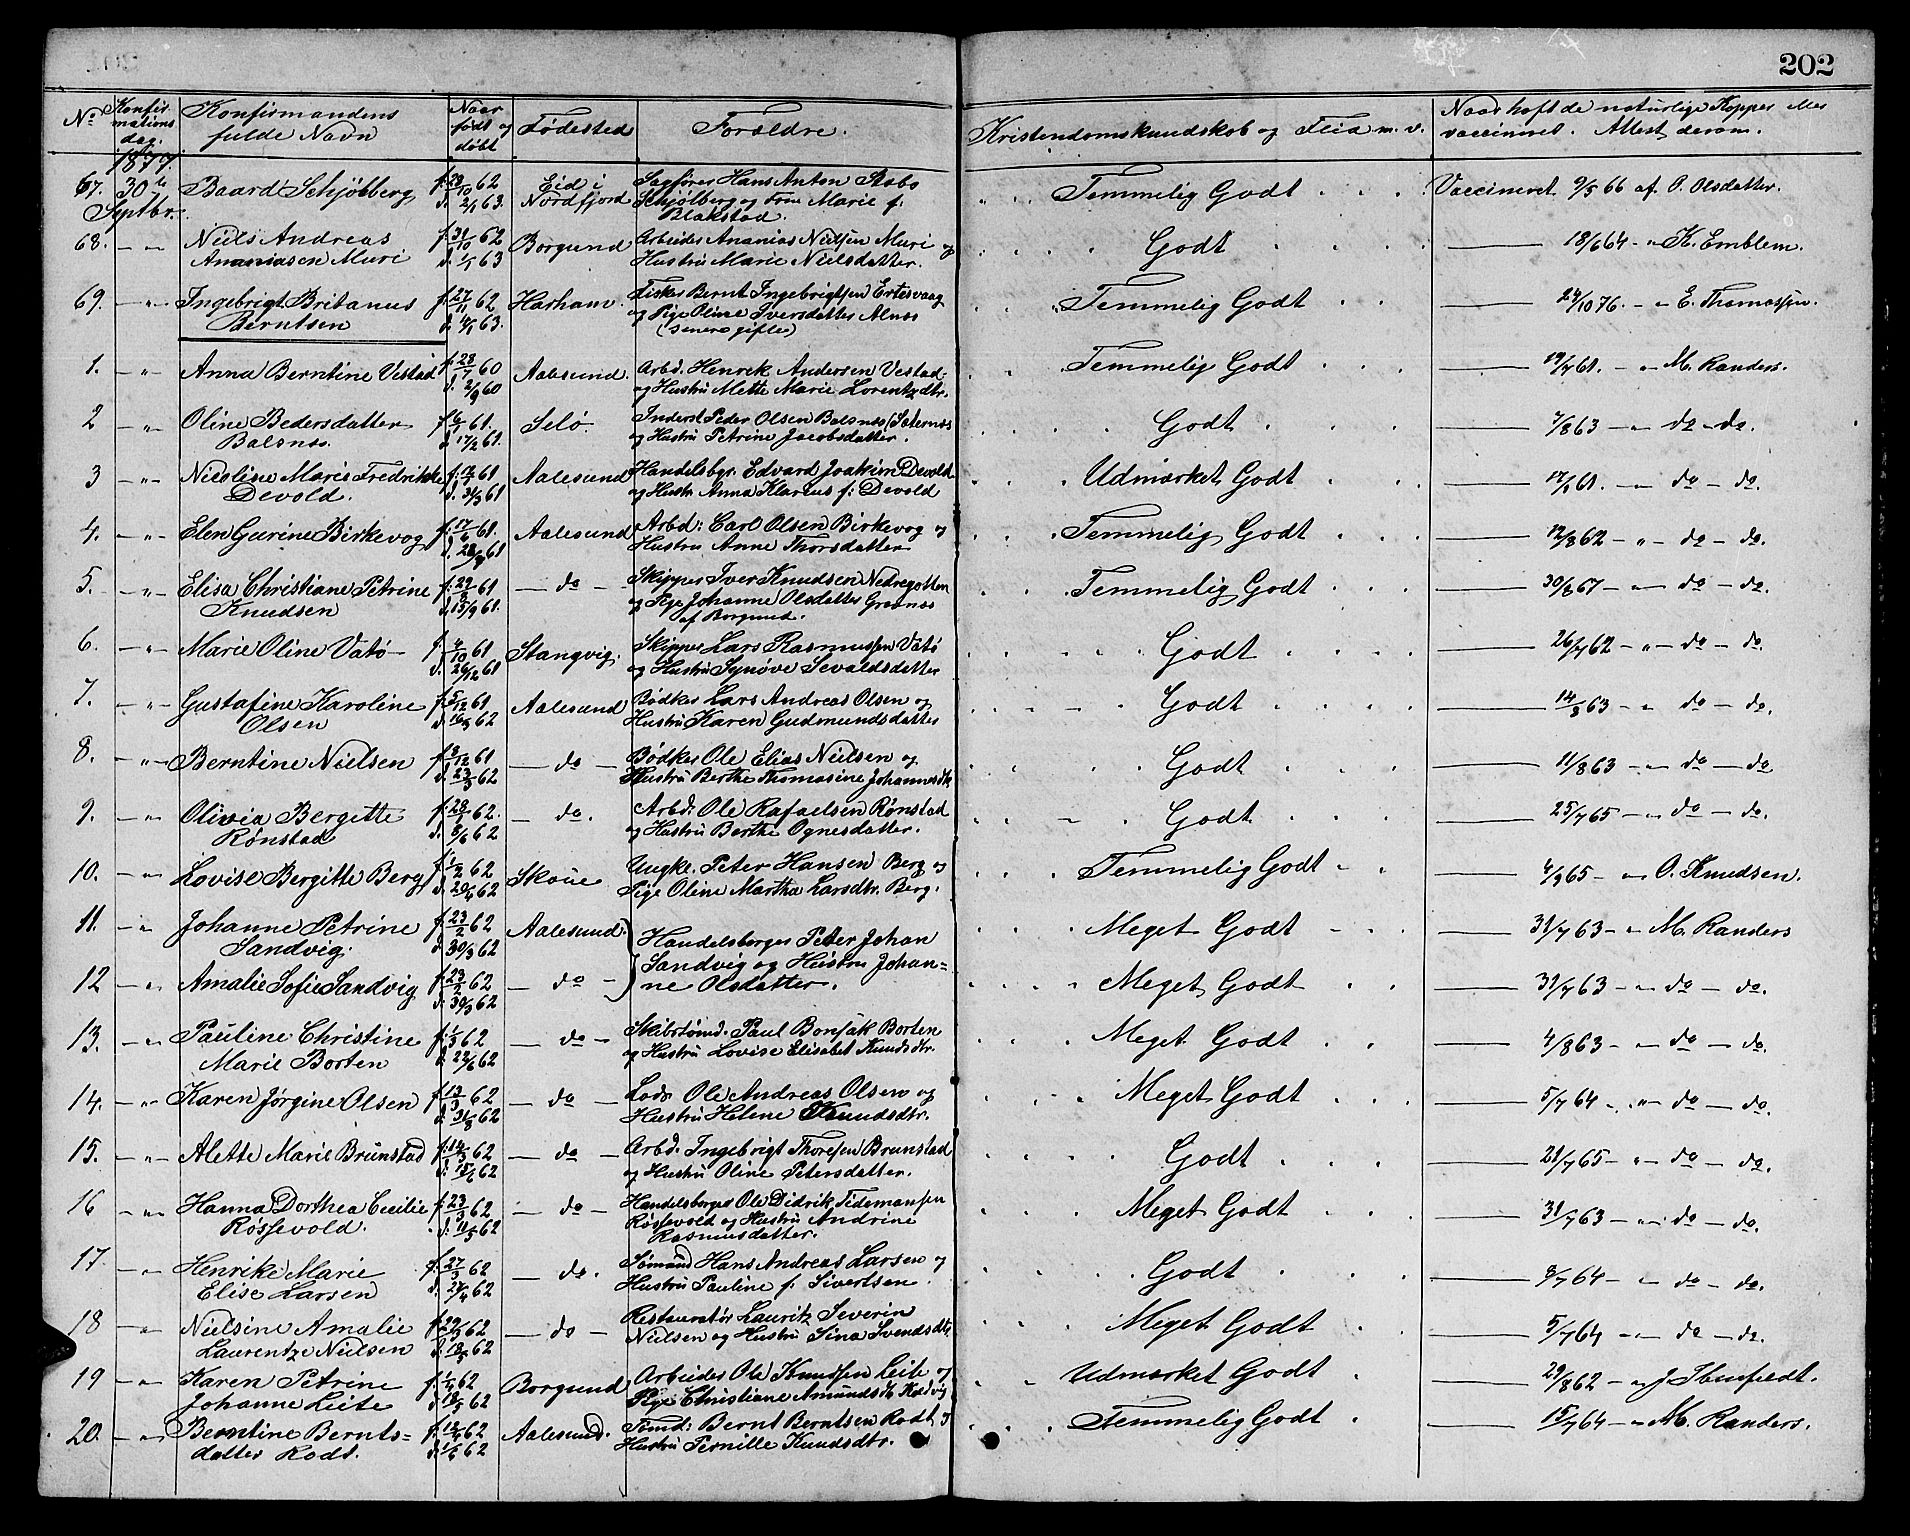 202
No Konfirmations dag. Konfirmandens fulde Navn Naar født og døbt Fødested Forældre. Kristendomskundskab og Flid m. v. Naar haft de naturlige Kopper eller vaccineret. Attest derom.
1877.
67. 30te Septbr. Baard Schjølberg f. 23/10 62 d. 2/1 63. Eid i Nordfjord Sagfører Hans Anton Stabo Schjølberg og Marie f. Blakstad. Temmelig Godt Vaccineret 9/5 66 af O. Olsdatter.
68. – " Niels Andreas Ananiasen Muri f. 31/10 62 d. 1/1 63 Borgund Arbeider Ananias Nielsen Muri og Hustru Marie Nielsdatter. Godt — 18/6 64 – " K. Emblem.
69. – " Ingebrigt Britanus Berntsen f. 27/11 62 d. 4/1 63. Harham. Fisker Bernt Ingebrigtsen Ertesvaag og Pige Oline Iversdatter Alnæs (senere gifte) Temmelig Godt — 24/10 76. – " E. Thomassen.
1. – " Anna Berntine Vestad f. 28/7 60 d. 2/9 60 Aalesund. Arbd. Henrik Andersen Vestad og Hustru Mette Marie Lorentzdtr. Temmelig Godt — 19/7 61. – " M. Randers.
2 – " Oline Pedersdatter Balsnæs. f. 6/1 61. d. 17/2 61. Selø. Inderst Peder Olsen Balsnæs og Hustru Petrine Jacobsdatter. Godt — 7/8 63 – " do – do.
3 – " Nicoline Marie Fredrikke Devold. f. 12/1 61 d. 31/3 61 Aalesund Handelsbgr. Edvard Joakim Devold og Hustr. Anna Klarius f: Devold Udmærket Godt — 17/7 61. – " do – do.
4. – " Elen Gurine Birkevog f. 17/6 61. d. 28/7 61 Aalesund Arbd: Carl Olsen Birkevog og Hustru Anne Thorsdatter Temmelig Godt — 12/8 62 – " – do – do.
5. – " Elisa Christiane Petrine Knudsen f. 29/8 61 d. 15/9 61. – do – Skipper Iver Knudsen Nedregotten og Pige Johanne Olsdatter Grønæs af Borgund. Temmelig Godt — 30/8 67 – " do – do.
6. – " Marie Oline Vatø f. 4/10 61 d. 26/12 61 Stangvig. Skipper Lars Rasmussen Vatø og Hustru Synøve Sevaldsdatter Godt — 26/7 62 – " – do – do.
7. – " Gustafine Karoline Olsen f. 5/12 61 d. 16/3 62 Aalesund Bødker Lars Andreas Olsen og Hustru Karen Gudmundsdatter Godt — 14/8 63 – " do – do.
8. – " Berntine Nielsen f. 3/12 61 d. 23/3 62 – do – Bødker Ole Elias Nielsen og Hustru Berthe Thomasine Johannesdtr Godt — 11/8 63 – " do – do
9. – " Olivia Bergitte Rønstad f. 28/1 62. d. 8/6 62 – do. Arbd. Ole Rafaelsen Rønstad og Hustru Berthe Ognesdatter. Godt — 25/7 65 – " do – do.
10. – " Lovise Bergitte Berg f. 1/2 62 d. 20/4 62 Skoue Ungk. Peter Hansen Berg og Pige Oline Martha Larsdtr. Berg. Temmelig Godt — 4/9 65 – " O. Knudsen.
11. – " Johanne Petrine Sandvig. f. 23/2 62 d. 30/3 62 Aalesund. Handelsborger Peter Johan Meget Godt — 31/7 63 – " M. Randers
12 – " Amalie Sofie Sandvig f. 23/2 62 d. 30/3 62 – do – Sandvig og Hustru Johanne Olsdatter. Meget Godt — 31/7 63 – " do – do.
13. – " Pauline Christine Marie Borten f. 1/3 62 d. 22/6 62 – do – Skibstømd. Paul Bonsak Borten og Hustru Lovise Elisabet Knudsdtr. Meget Godt — 4/8 63 – " do – do.
14. – " Karen Jørgine Olsen f. 13/3 62 d. 31/8 62 – do – Lods Ole Andreas Olsen og Hustru Helene Knudsdtr. Meget Godt — 5/7 64 – " do – do.
15. – " Alette Marie Brunstad f. 14/3 62 d. 15/6 62 – do – Arbd. Ingebrigt Thoresen Brunstad og Hustru Oline Petersdatter. Godt — 21/7 65 – " do – do.
16 – " Hanna Dorthea Cecilie Røssevold. f. 23/3 62 d. 11/5 62 – do – Handelsborger Ole Didrik Tidemansen Røssevold og Hustru Andrine Rasmusdatter. Meget Godt — 31/7 63 – " do – do.
17. – " Henrike Marie Elise Larsen f. 27/3 62 d. 27/4 62 – do. Sømand Hans Andreas Larsen og Hustru Pauline f. Sivertsen. Godt — 8/7 64 – " do – do.
18 – " Nielsine Amalie Laurentze Nielsen f. 29/3 62 d. 18/5 62 – do – Restauratør Lauritz Severin Nielsen og Hustru Sina Svendsdtr Meget Godt — 5/7 64 – " do – do.
19 – " Karen Petrine Johanne Leite f. 1/4 62 d. 18/5 62 Borgund Arbeider Ole Knudsen Leite og Pige Christiane Amundsdtr. Udmærket Godt — 29/8 62 – "
20. – " Berntine Berntsdatter Rodt. f. 12/4 62 d. 1/6 62 Aalesund. Tømd: Bernt Berntsen Rodt og Hustru Pernille Knudsdtr. Temmelig Godt — 15/7 64 – " M. Randers.